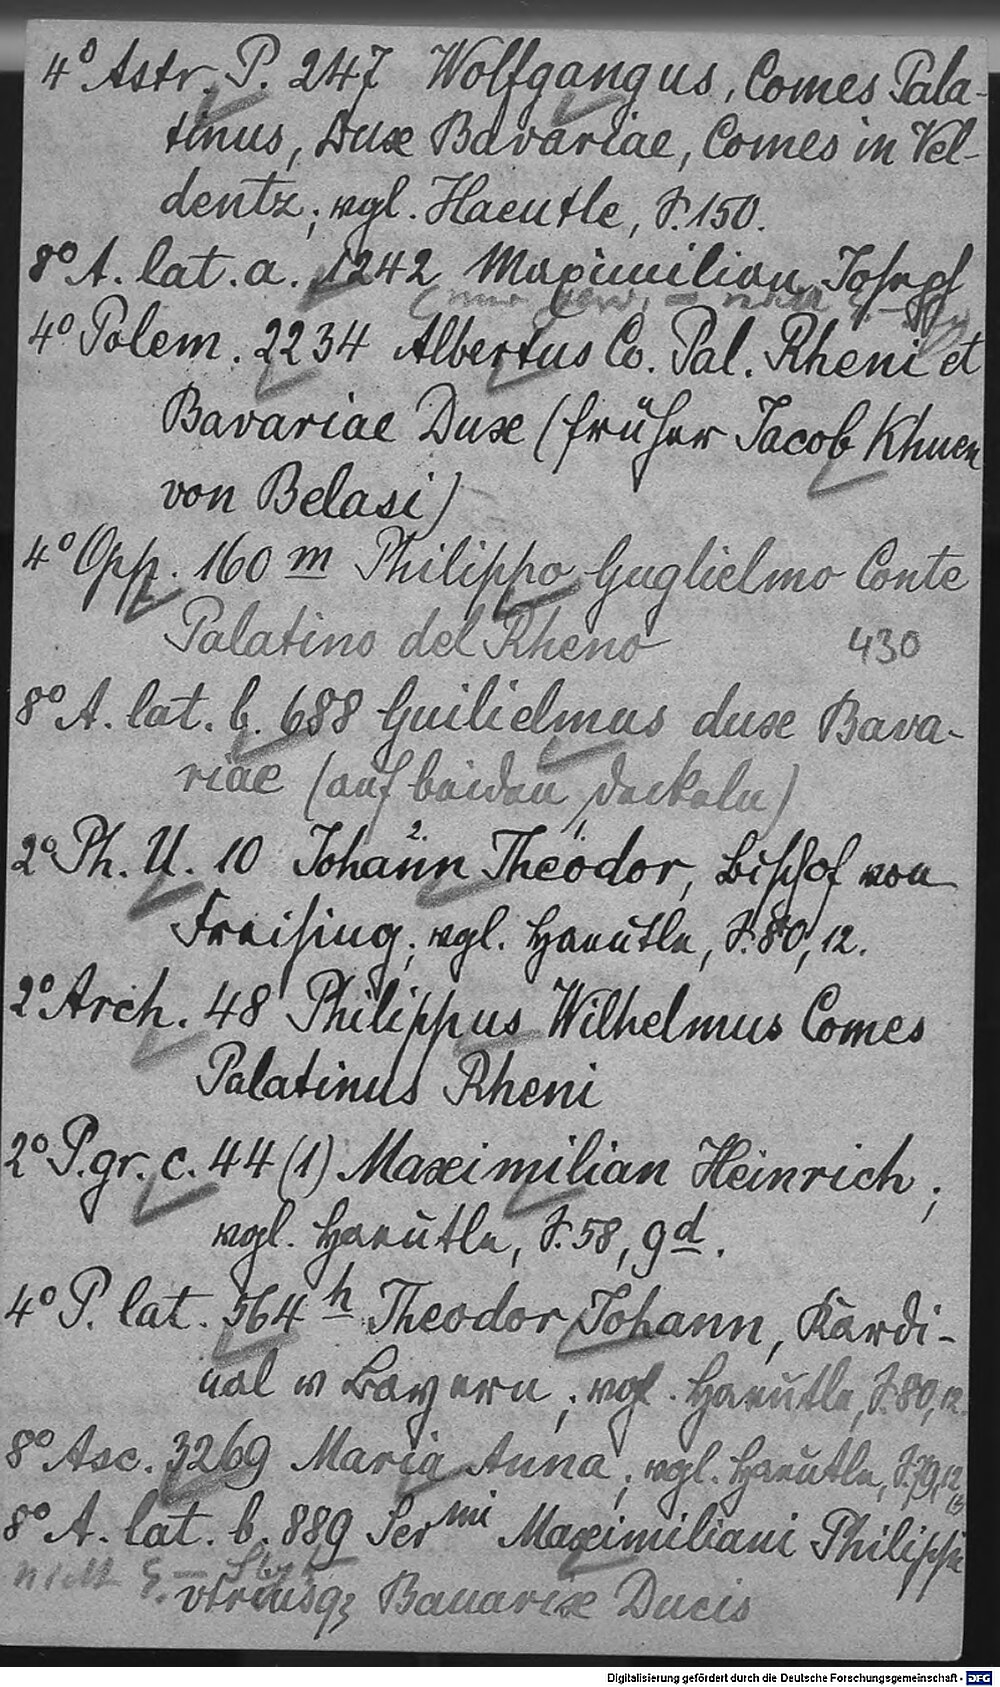 4° Astr. P. 247 Wolfgangus, Comes Pala-
tinus, Dux Bavariae, Comes in Vel-
dentz; vgl. Haeutle, S. 150.
8° A. lat. a. 1242 Maximilian Joseph
4° Polem. 2234 Albertus Co. Pal. Rheni et
Bavariae Dux (früher Jacob Khuen
von Belasi)
4° Opp. 160 m Philippo Guglielmo Conte
Palatino del Rheno 430
8° A. lat. b. 688 Guilielmus dux Bava-
riae (auf beiden Deckeln)
2° Ph. U. 10 Johann Theodor, Bischof von
Freising; vgl. Haeutle, S. 80, 12.
2° Arch. 48 Philippus Wilhelmus Comes
Palatinus Rheni
2° P. gr. c. 44 (1) Maximilian Heinrich;
vgl. Haeutle, S. 58, 9 d.
4° P. lat. 564 h Theodor Johann, Kardi-
nal v Bayern; vgl. Haeutle, S. 80, 12.
8° Asc. 3269 Maria Anna; vgl. Haeutle, S. 79, 12
8° A. lat. b. 889 Ser mi Maximiliani Philippi
nicht
vtriusqz Bauariæ Ducis
Digitalisierung gefördert durch die Deutsche Forschungsgemeinschaft - DFG